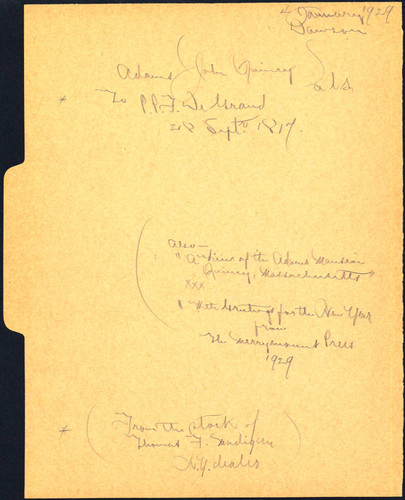 4 January 1929
Dawson
Adams John Quincy a.l.s.
* To P.P.F. DeGrand
28 Septr. 1817.
Also—
"A view of the Adams Mansion
Quincy, Massachusetts"
xxx
" With Greetings for the New Year
from
The Merrymount Press
1929
* (From the stock of
Thomas F. Madigan
N.Y. dealer